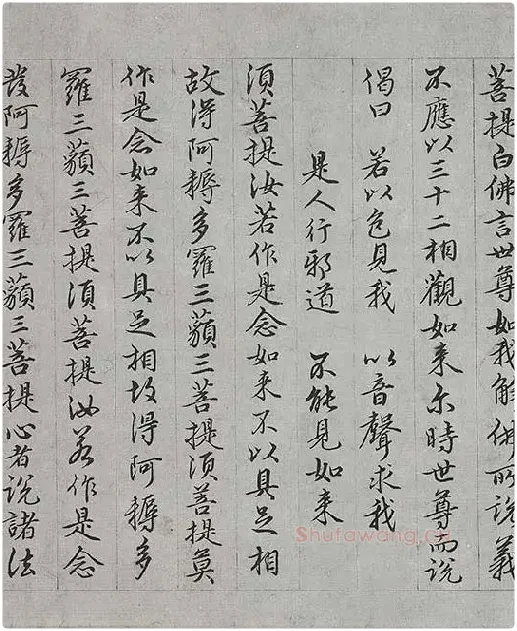 菩提白佛言世尊如我解佛所説義
不應以三十二相觀如来尔時世尊而説
偈曰 若以色見我 以音聲求我
是人行邪道 不能見如来
須菩提汝若作是念如来不以具足相
故得阿耨多羅三藐三菩提須菩提莫
作是念如来不以具足相故得阿耨多
羅三藐三菩提須菩提汝若作是念
發阿耨多羅三藐三菩提心者説諸法
Shufawang.cn